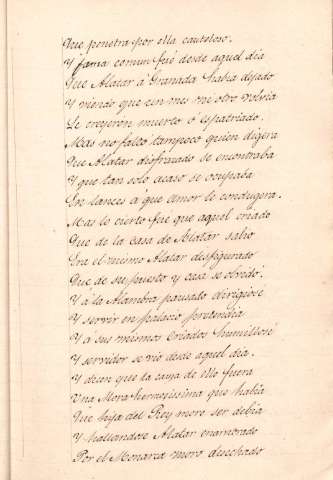 Que penetra por ella cauteloso.
Y fama comun fué desde aquel dia
Que Alatar á Granada habia dejado
Y viendo que un mes ni otro volvia
Le creyeron muerto ó espatriado.
Mas no faltó tampoco quien digera
Que Alatar disfrazado se encontraba
Y que tan solo acaso se ocupaba
En lances á que amor le condugera.
Mas lo cierto fué que aquel criado
Que de la casa de Alatár salio
Era el mismo Alatar desfigurado
Que de su puesto y casa se olvido.
Y á la Alambra pausado dirigiose
Y servir en palacio pretendia
Y á sus mismos criados humillose
Y servidor se vio desde aquel dia.
Y dicen que la causa de ello fuera
Una Mora hermosissima que habia
Que hija del Rey moro ser debia
Y hallandose Alatar enamorado
Por el Monarca moro desechado